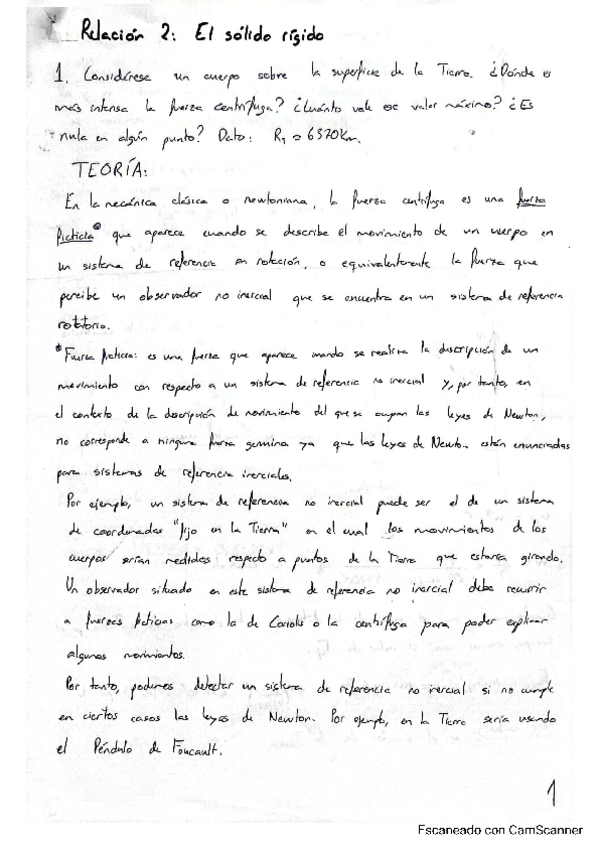 Relación 2: El sólido rígido
1. Considérese un cuerpo sobre la superficie de la Tierra. ¿Dónde es
más intensa la fuerza centrífuga? ¿Cuánto vale ese valor máximo? ¿Es
nula en algún punto? Dato: R_T = 6370km.
TEORÍA:
En la mecánica clásica o newtoniana, la fuerza centrífuga es una fuerza
ficticia* que aparece cuando se describe el movimiento de un cuerpo en
un sistema de referencia en rotación, o equivalentemente la fuerza que
percibe un observador no inercial que se encuentra en un sistema de referencia
rotatorio.
*Fuerza ficticia: es una fuerza que aparece cuando se realiza la descripción de un
movimiento con respecto a un sistema de referencia no inercial y, por tanto, en
el contexto de la descripción de movimiento del que se ocupan las leyes de Newton,
no corresponde a ninguna fuerza genuina ya que las leyes de Newton están enunciadas
para sistemas de referencia inerciales.
Por ejemplo, un sistema de referencia no inercial puede ser el de un sistema
de coordenadas "fijo en la Tierra" en el cual los movimientos de los
cuerpos serían medidos respecto a puntos de la Tierra que estaría girando.
Un observador situado en este sistema de referencia no inercial debe recurrir
a fuerzas ficticias como la de Coriolis o la centrífuga para poder explicar
algunos movimientos.
Por tanto, podemos detectar un sistema de referencia no inercial si no cumple
en ciertos casos las leyes de Newton. Por ejemplo, en la Tierra sería usando
el Péndulo de Foucault.
1
Escaneado con CamScanner